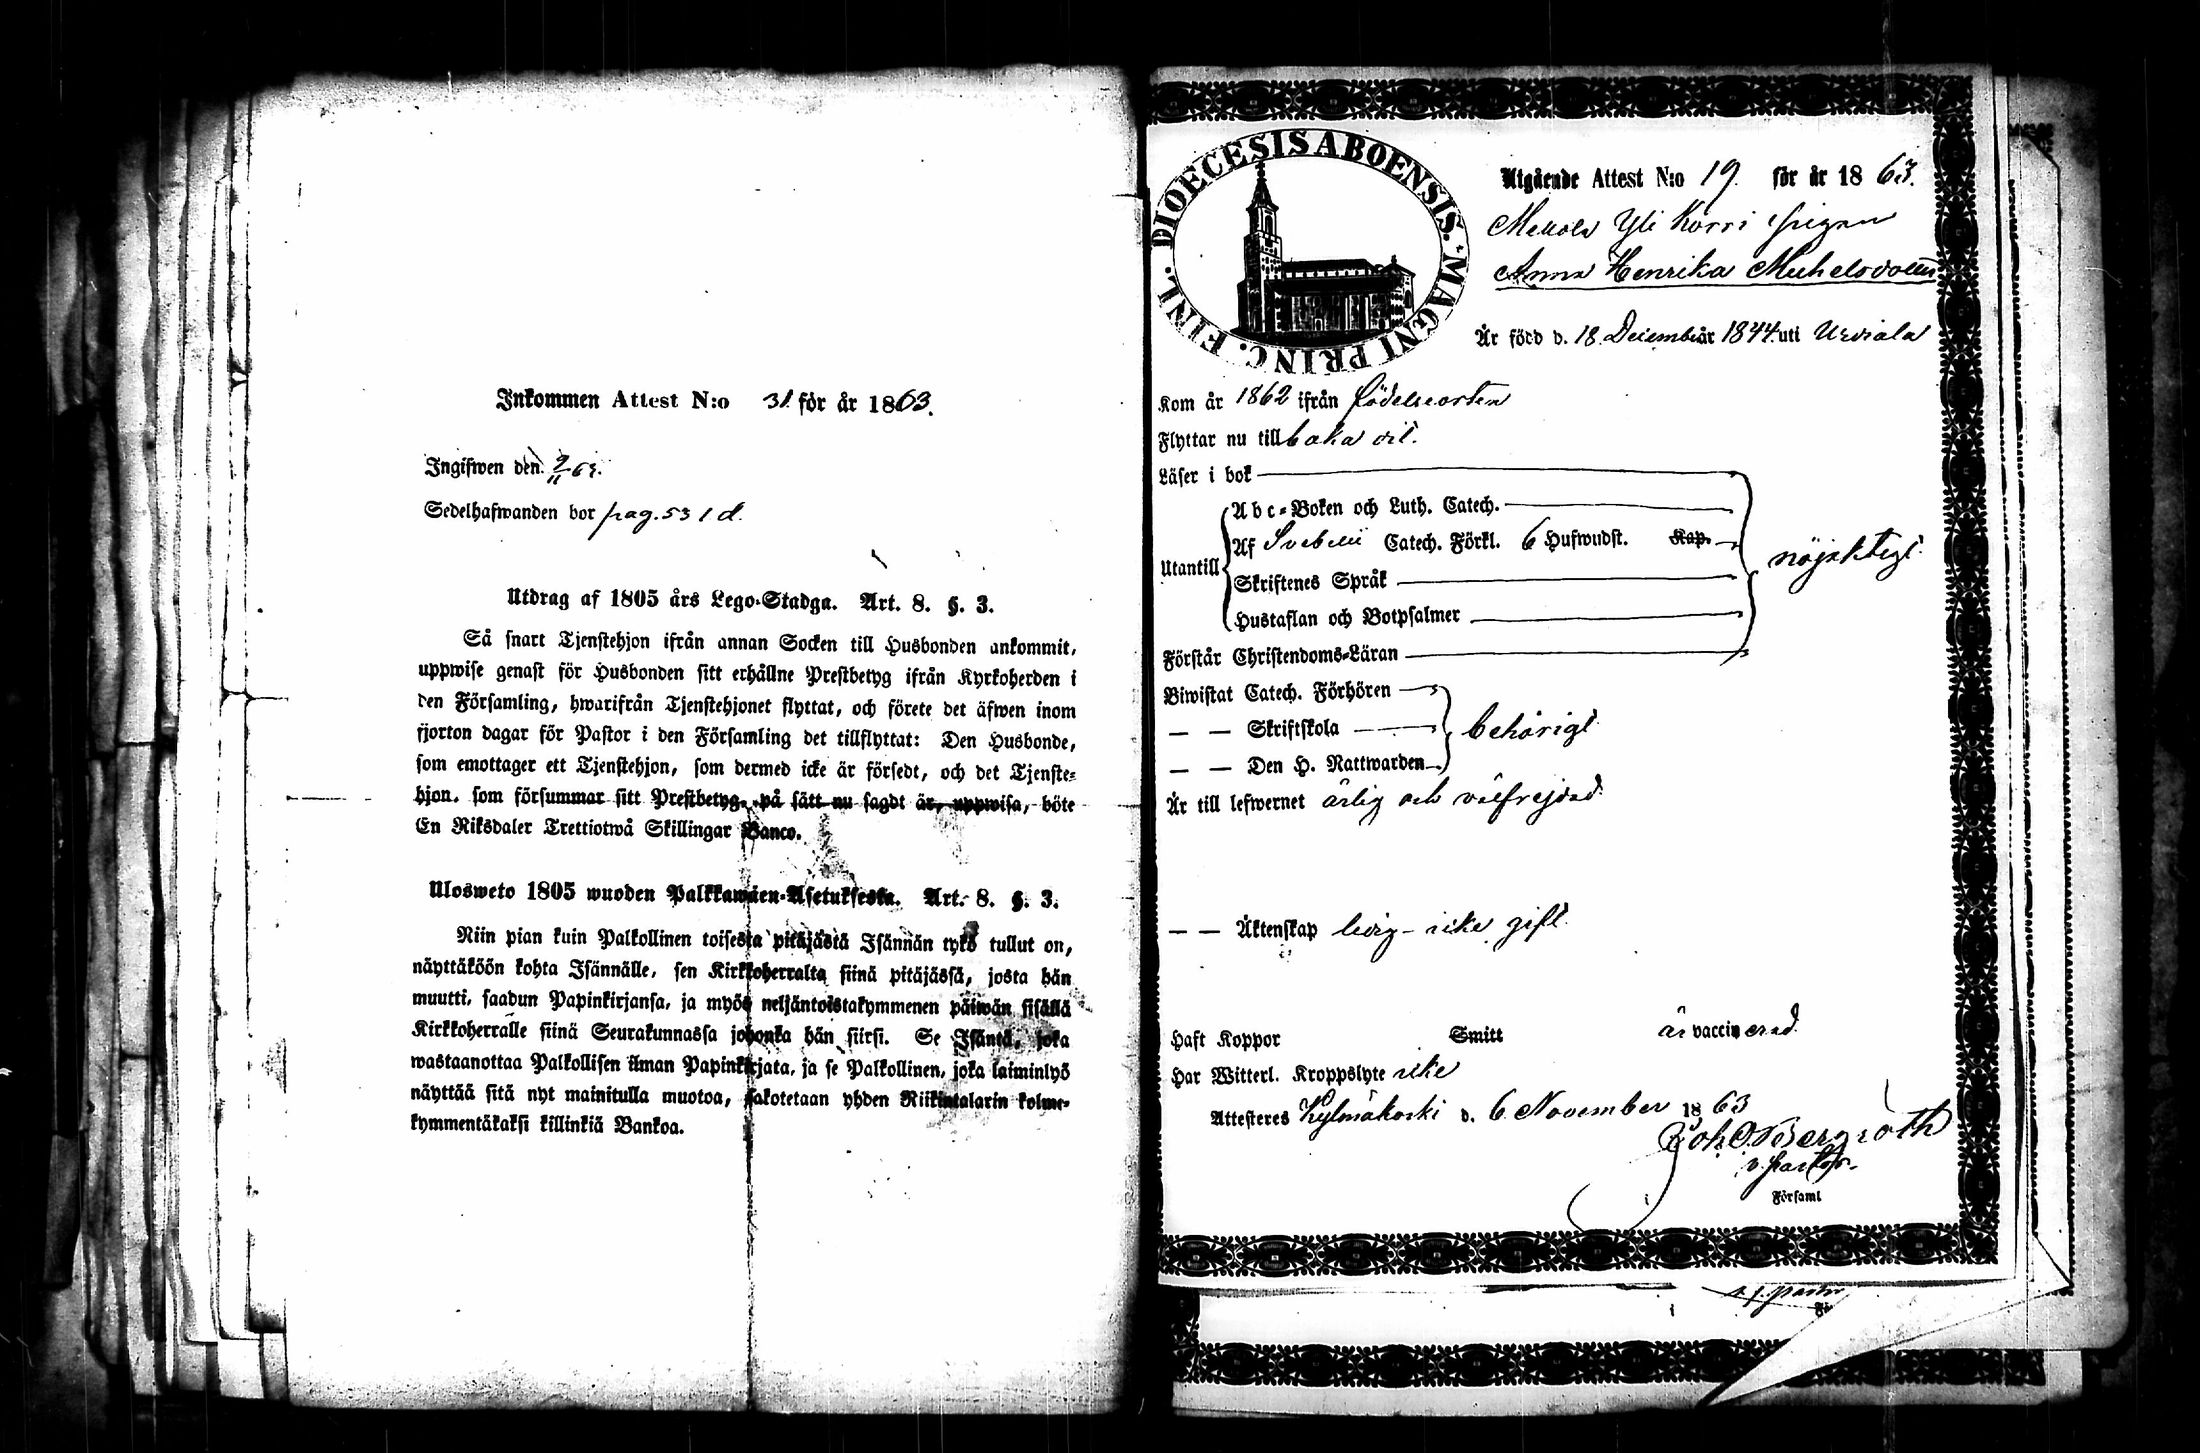 Inkommen Attest N:o 31 för år 1863.
Ingifwen den 9/11 63.
Sedelhafwanden bor pag. 531 d.
Utdrag af 1805 års Lego-Stadga. Art. 8. §. 3.
Så snart Tjenstehjon ifrån annan Socken till Husbonden ankommit,
uppwise genast för Husbonden sitt erhållne Prestbetyg ifrån Kyrkoherden i
den Församling, hwarifrån Tjenstehjonet flyttat, och förete det äfwen inom
fjorton dagar för Pastor i den Församling det tillflyttat: Den Husbonde,
som emottager ett Tjenstehjon, som dermed icke är försedt, och det Tjenste-
hjon, som försummar sitt Prestbetyg, på sätt nu sagdt är, uppwisa, böte
En Riksdaler Trettiotwå Skillingar Banco.
Ulosweto 1805 wuoden Palkkawäen-Asetuksesta. Art. 8. §. 3.
Niin pian kuin Palkollinen toisesta pitäjästä Isännän tykö tullut on,
näyttäköön kohta Isännälle, sen Kirkkoherralta siinä pitäjässä, josta hän
muutti, saadun Papinkirjansa, ja myös neljäntoistakymmenen päiwän sisällä
Kirkkoherralle siinä Seurakunnassa johonka hän siirsi. Se Isäntä, joka
wastaanottaa Palkollisen ilman Papinkirjata, ja se Palkollinen, joka laiminlyö
näyttää sitä nyt mainitulla muotoa, sakotetaan yhden Riikintalarin kolme-
kymmentäkaksi killinkiä Bankoa.
DIOECESIS ABOENSIS. MAGNI PRINC. FINL.
Utgående Attest N:o 19. för år 1863.
Mekola Yli Korri pigan
Anna Henrika Michelsdotter
Är född d. 18 December år 1844 uti Urdiala
Kom år 1862 ifrån födelseorten
Flyttar nu tillbaka dit.
Läser i bok
Abc-Boken och Luth. Catech.
Utantill
Af Svebelii Catech. Förkl. 6 Hufwudst. Kap.
nöjaktigt.
Skriftenes Språk
Hustaflan och Botpsalmer
Förstår Christendoms-Läran
Biwistat Catech. Förhören
— — Skriftskola
behörigt
— — Den H. Nattwarden
Är till lefwernet ärlig och välfrejdad.
— — Äktenskap ledig - icke gift.
Haft Koppor Smitt är vaccinerad.
Har Witterl. Kroppslyte icke
Attesteres Kylmäkoski d. 6 November 1863
Joh. O. Bergroth
v. pastor.
i Församl
v. pastor
i Fö